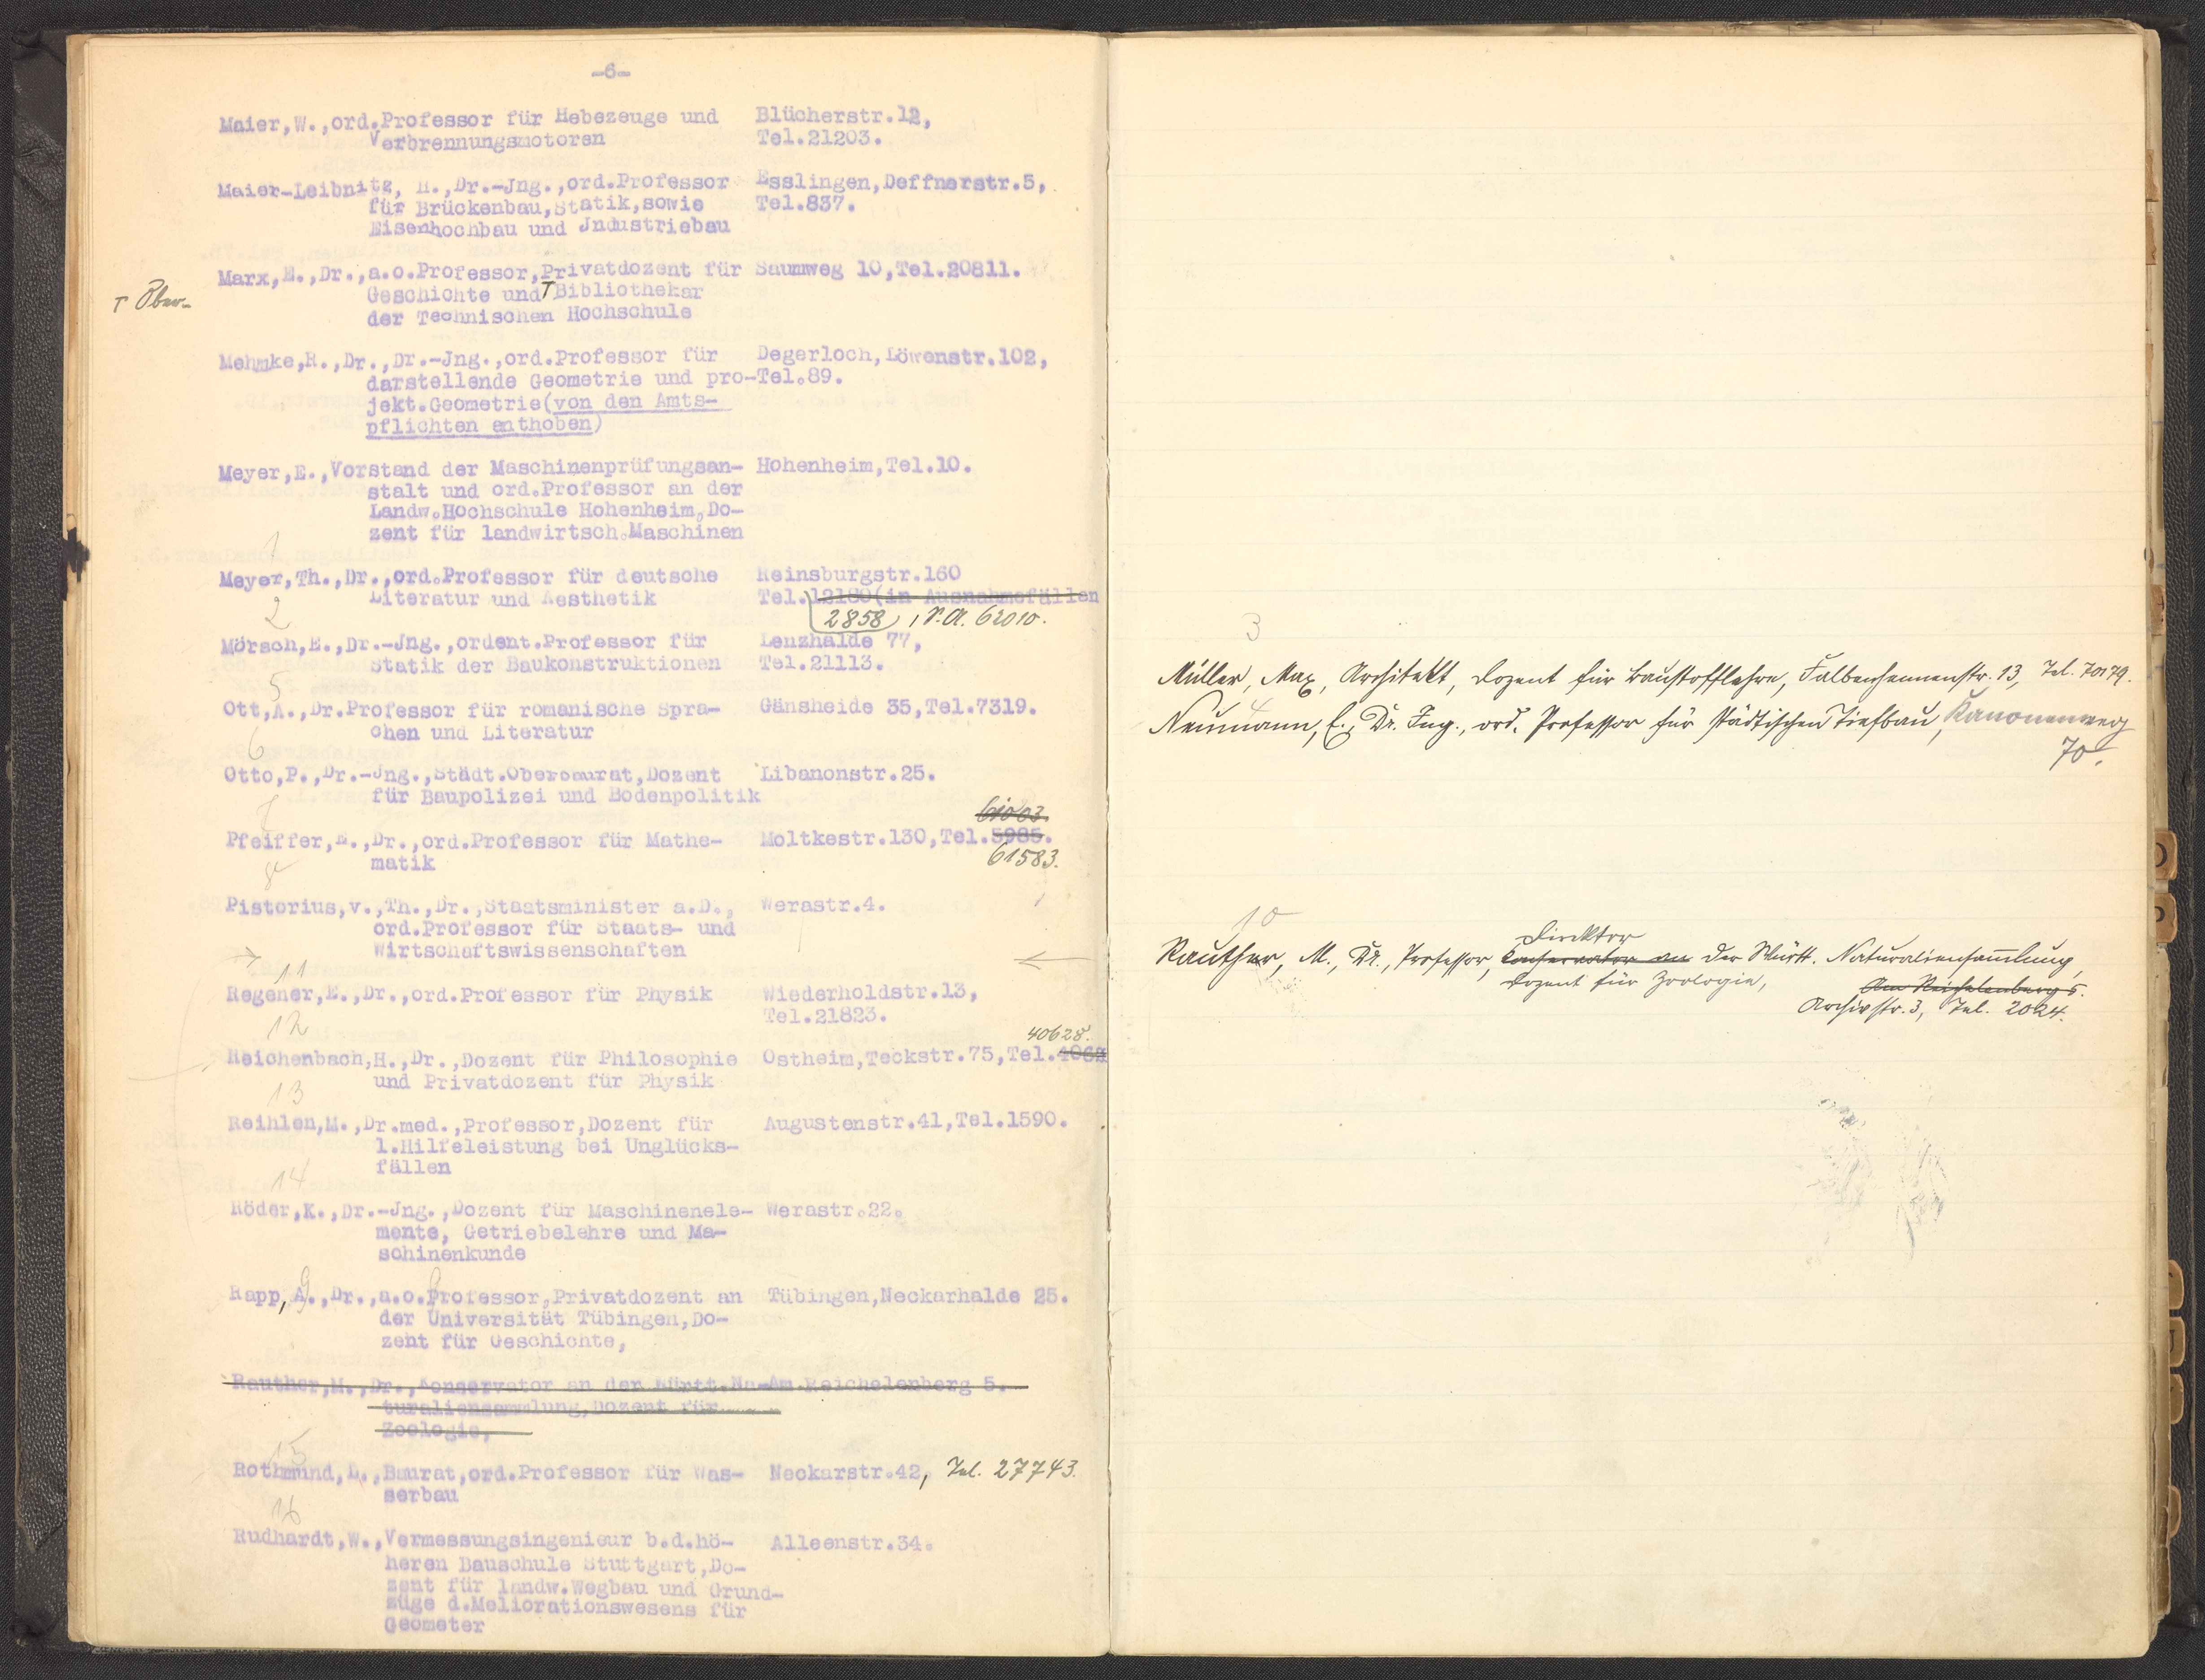 -6-
Maier,W.,ord.Professor für Hebezeuge und Blücherstr.12,
Verbrennungsmotoren Tel.21203.
Maier-Leibnitz, H.,Dr.-Jng.,ord.Professor Esslingen,Deffnerstr.5,
für Brückenbau,Statik,sowie Tel.837.
Eisenhochbau und Jndustriebau
Marx,E.,Dr.,a.o.Professor,Privatdozent für Saumweg 10,Tel.20811.
Γ Ober- Geschichte und Γ Bibliothekar
der Technischen Hochschule
Mehmke,R.,Dr.,Dr.-Jng.,ord.Professor für Degerloch,Löwenstr.102,
darstellende Geometrie und pro- Tel.89.
jekt.Geometrie(von den Amts-
pflichten enthoben)
Meyer,E.,Vorstand der Maschinenprüfungsan- Hohenheim,Tel.10.
stalt und ord.Professor an der
Landw.Hochschule Hohenheim,Do-
zent für landwirtsch.Maschinen
1
Meyer,Th.,Dr.,ord.Professor für deutsche Reinsburgstr.160
Literatur und Aesthetik Tel.12180(in Ausnahmefällen
2 2858), N.A. 62010.
Mörsch,E.,Dr.-Jng.,ordent.Professor für Lenzhalde 77,
Statik der Baukonstruktionen Tel.21113.
5
Ott,A.,Dr.Professor für romanische Spra- Gänsheide 35,Tel.7319.
chen und Literatur
6
Otto,P.,Dr.-Jng.,Städt.Oberbaurat,Dozent Libanonstr.25.
für Baupolizei und Bodenpolitik
7
Pfeiffer,E.,Dr.,ord.Professor für Mathe- Moltkestr.130,Tel.5985.
matik 61583.
8
Pistorius,v.,Th.,Dr.,Staatsminister a.D., Werastr.4.
ord.Professor für Staats- und
Wirtschaftswissenschaften
11
Regener,E.,Dr.,ord.Professor für Physik Wiederholdstr.13,
Tel.21823.
12 40628.
Reichenbach,H.,Dr.,Dozent für Philosophie Ostheim,Teckstr.75,Tel.4062
und Privatdozent für Physik
13
Reihlen,M.,Dr.med.,Professor,Dozent für Augustenstr.41,Tel.1590.
1.Hilfeleistung bei Unglücks-
fällen
14
Röder,K.,Dr.-Jng.,Dozent für Maschinenele- Werastr.22.
mente, Getriebelehre und Ma-
schinenkunde
9
Rapp,A.,Dr.,a.o.Professor,Privatdozent an Tübingen,Neckarhalde 25.
der Universität Tübingen,Do-
zent für Geschichte,
Rauther,M.,Dr.,Konservator an der Württ.Na- Am Reichelenberg 5.
turaliensammlung,Dozent für
Zoologie,
15
Rothmund,L.,Baurat,ord.Professor für Was- Neckarstr.42, Tel. 27743.
serbau
16
Rudhardt,W.,Vermessungsingenieur b.d.hö- Alleenstr.34.
heren Bauschule Stuttgart,Do-
zent für landw.Wegbau und Grund-
züge d.Meliorationswesens für
Geometer
3
Müller, Max, Architekt, Dozent für Baustofflehre, Falbenhennenstr. 13, Tel. 70179.
4
Neumann, E., Dr. Ing., ord. Professor für städtischen Tiefbau, Kanonenweg
70.
10
Direktor
Rauther, M., Dr., Professor, Konservator an der Württ. Naturaliensammlung,
Dozent für Zoologie, Am Reichelenberg 5.
Archivstr. 3, Tel. 2024.